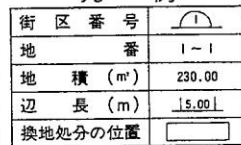 街区番号 1
地番 1~1
地積(㎡) 230.00
辺長(m) 15.00
換地処分の位置